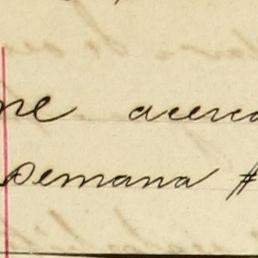 me acerca
semana #